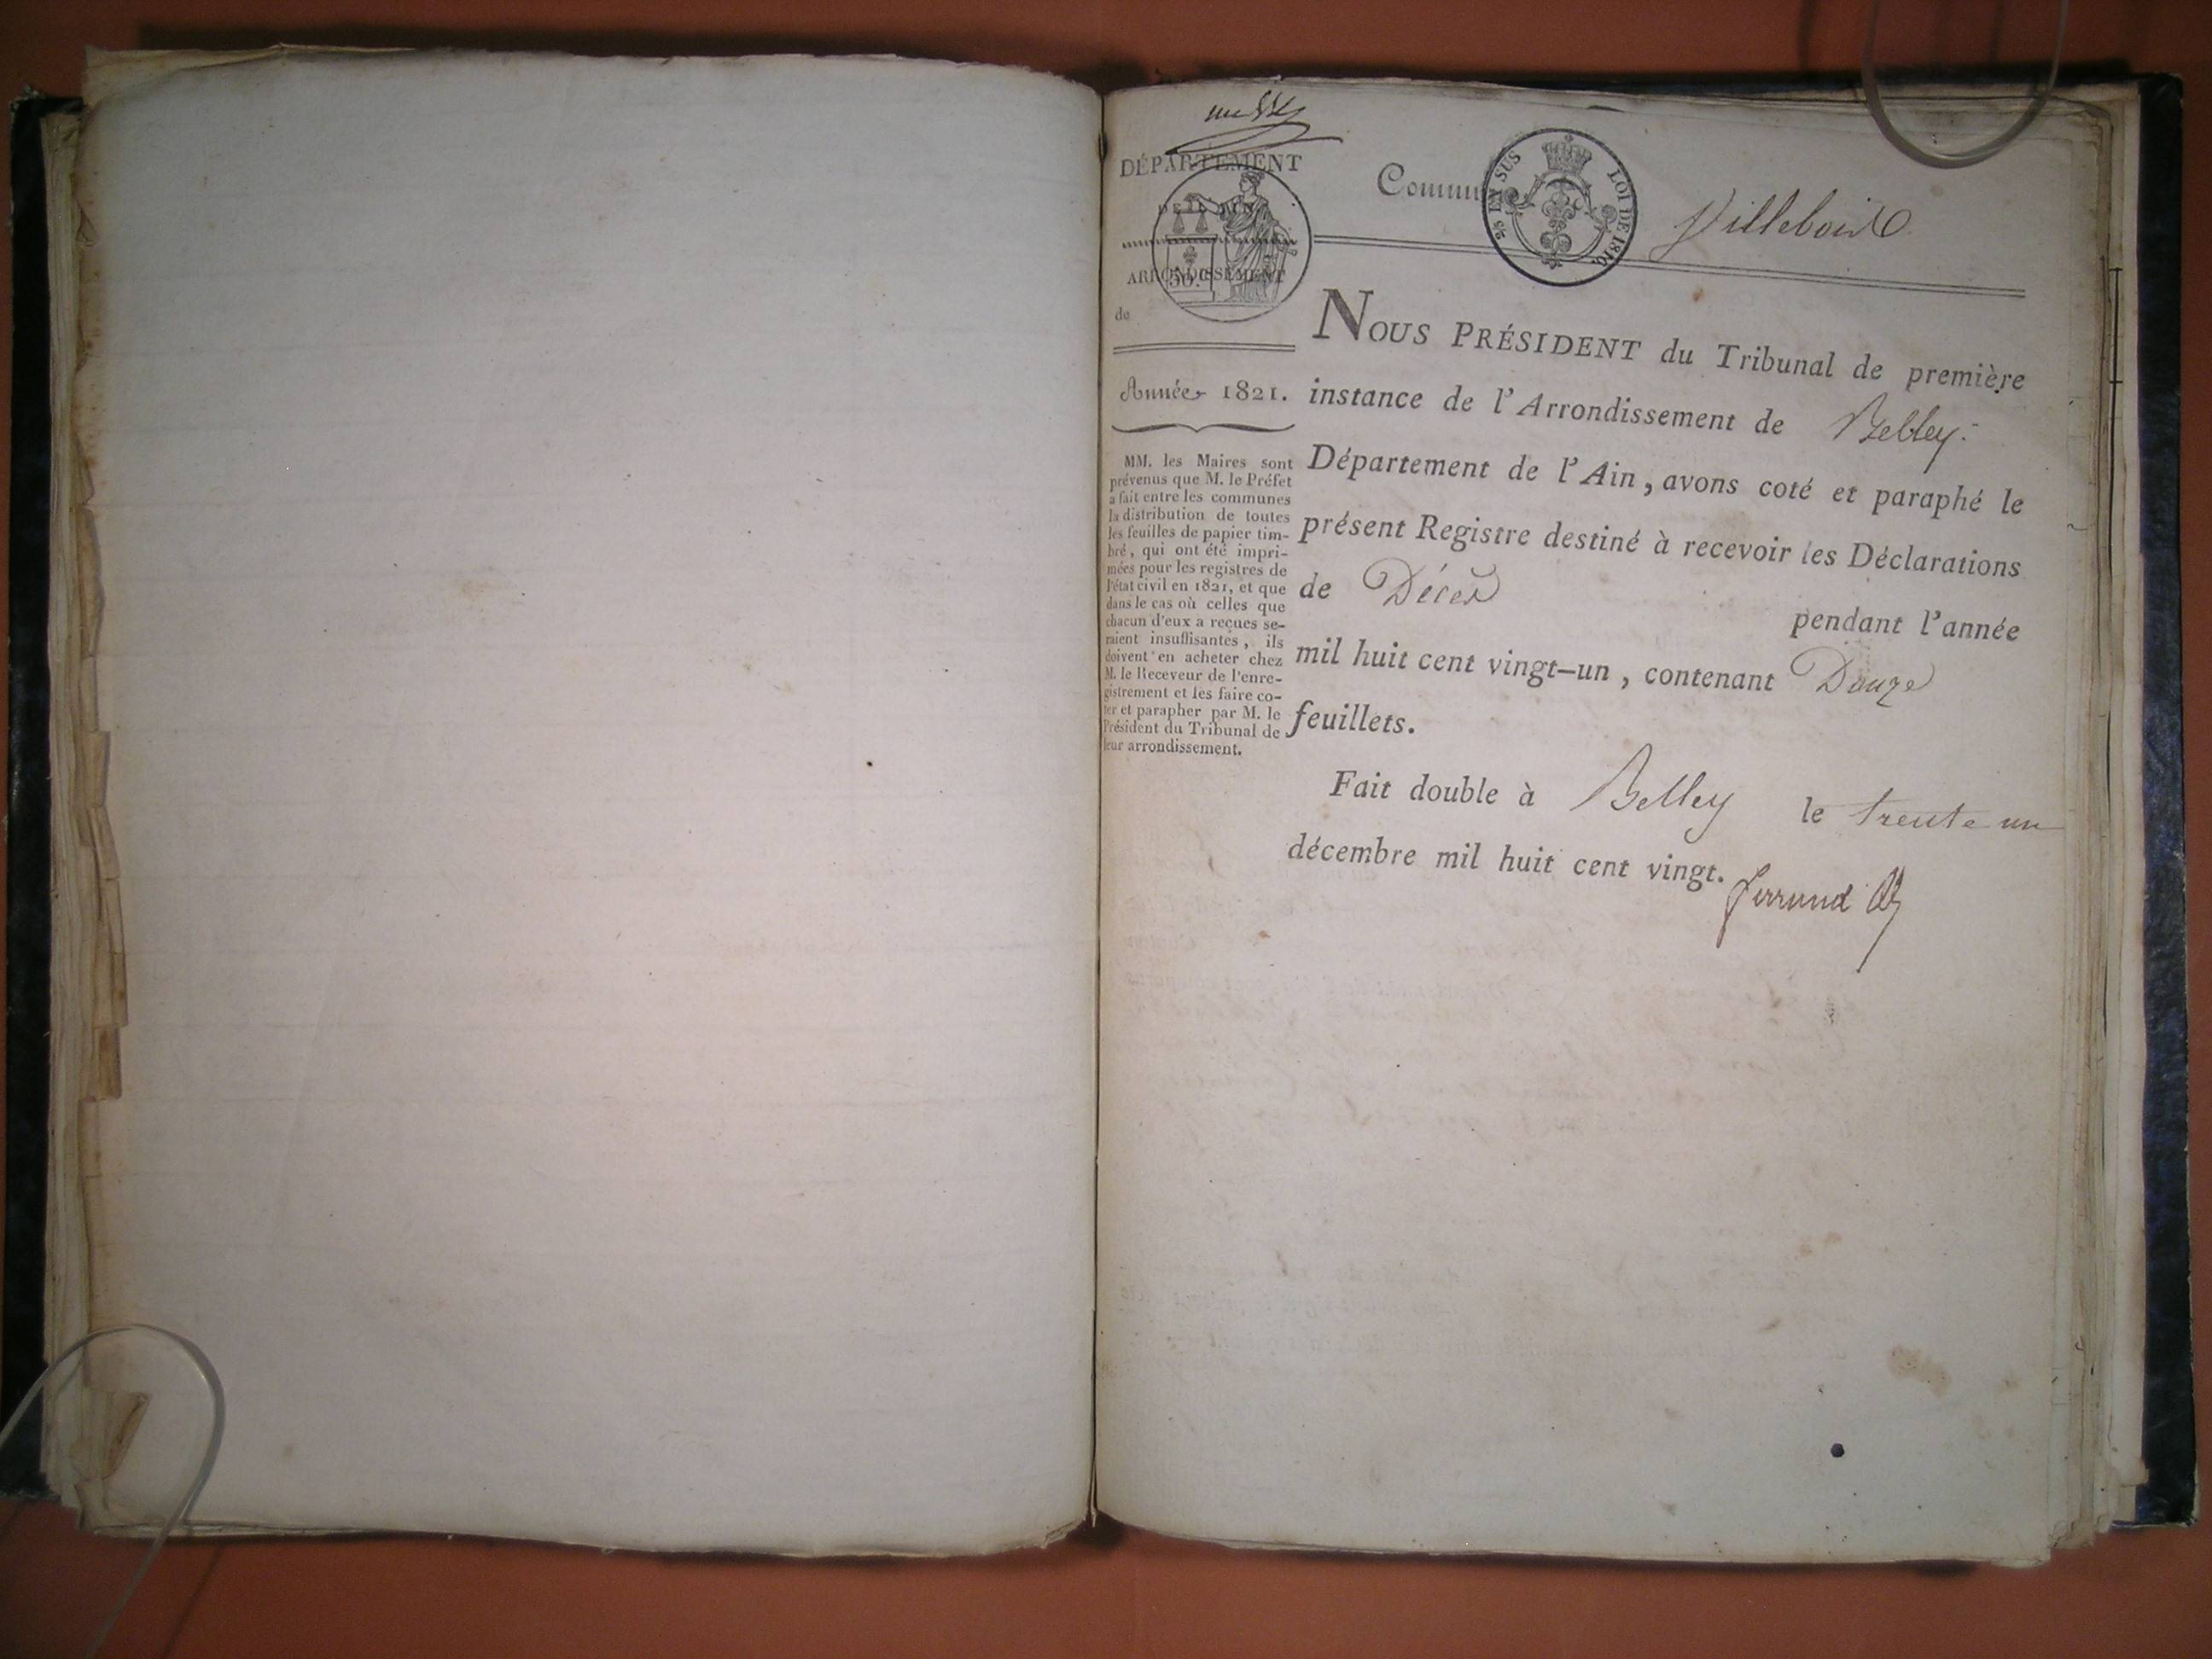 DÉPARTEMENT
DE L'AIN
ARRONDISSEMENT
de
30.C
Année 1821.
MM. les Maires sont
prévenus que M. le Préfet
a fait entre les communes
la distribution de toutes
les feuilles de papier tim-
bré, qui ont été impri-
mées pour les registres de
l'état civil en 1821, et que
dans le cas où celles que
chacun d'eux a reçues se-
raient insuffisantes, ils
doivent en acheter chez
M. le Receveur de l'enre-
gistrement et les faire co-
ter et parapher par M. le
Président du Tribunal de
leur arrondissement.
Commu Villebois
EN SUS LOI DE 1816.
NOUS PRÉSIDENT du Tribunal de première
instance de l'Arrondissement de Belley.
Département de l'Ain, avons coté et paraphé le
présent Registre destiné à recevoir les Déclarations
de Décès pendant l'année
mil huit cent vingt-un, contenant Douze
feuillets.
Fait double à Belley le trente un
décembre mil huit cent vingt.
ferrand